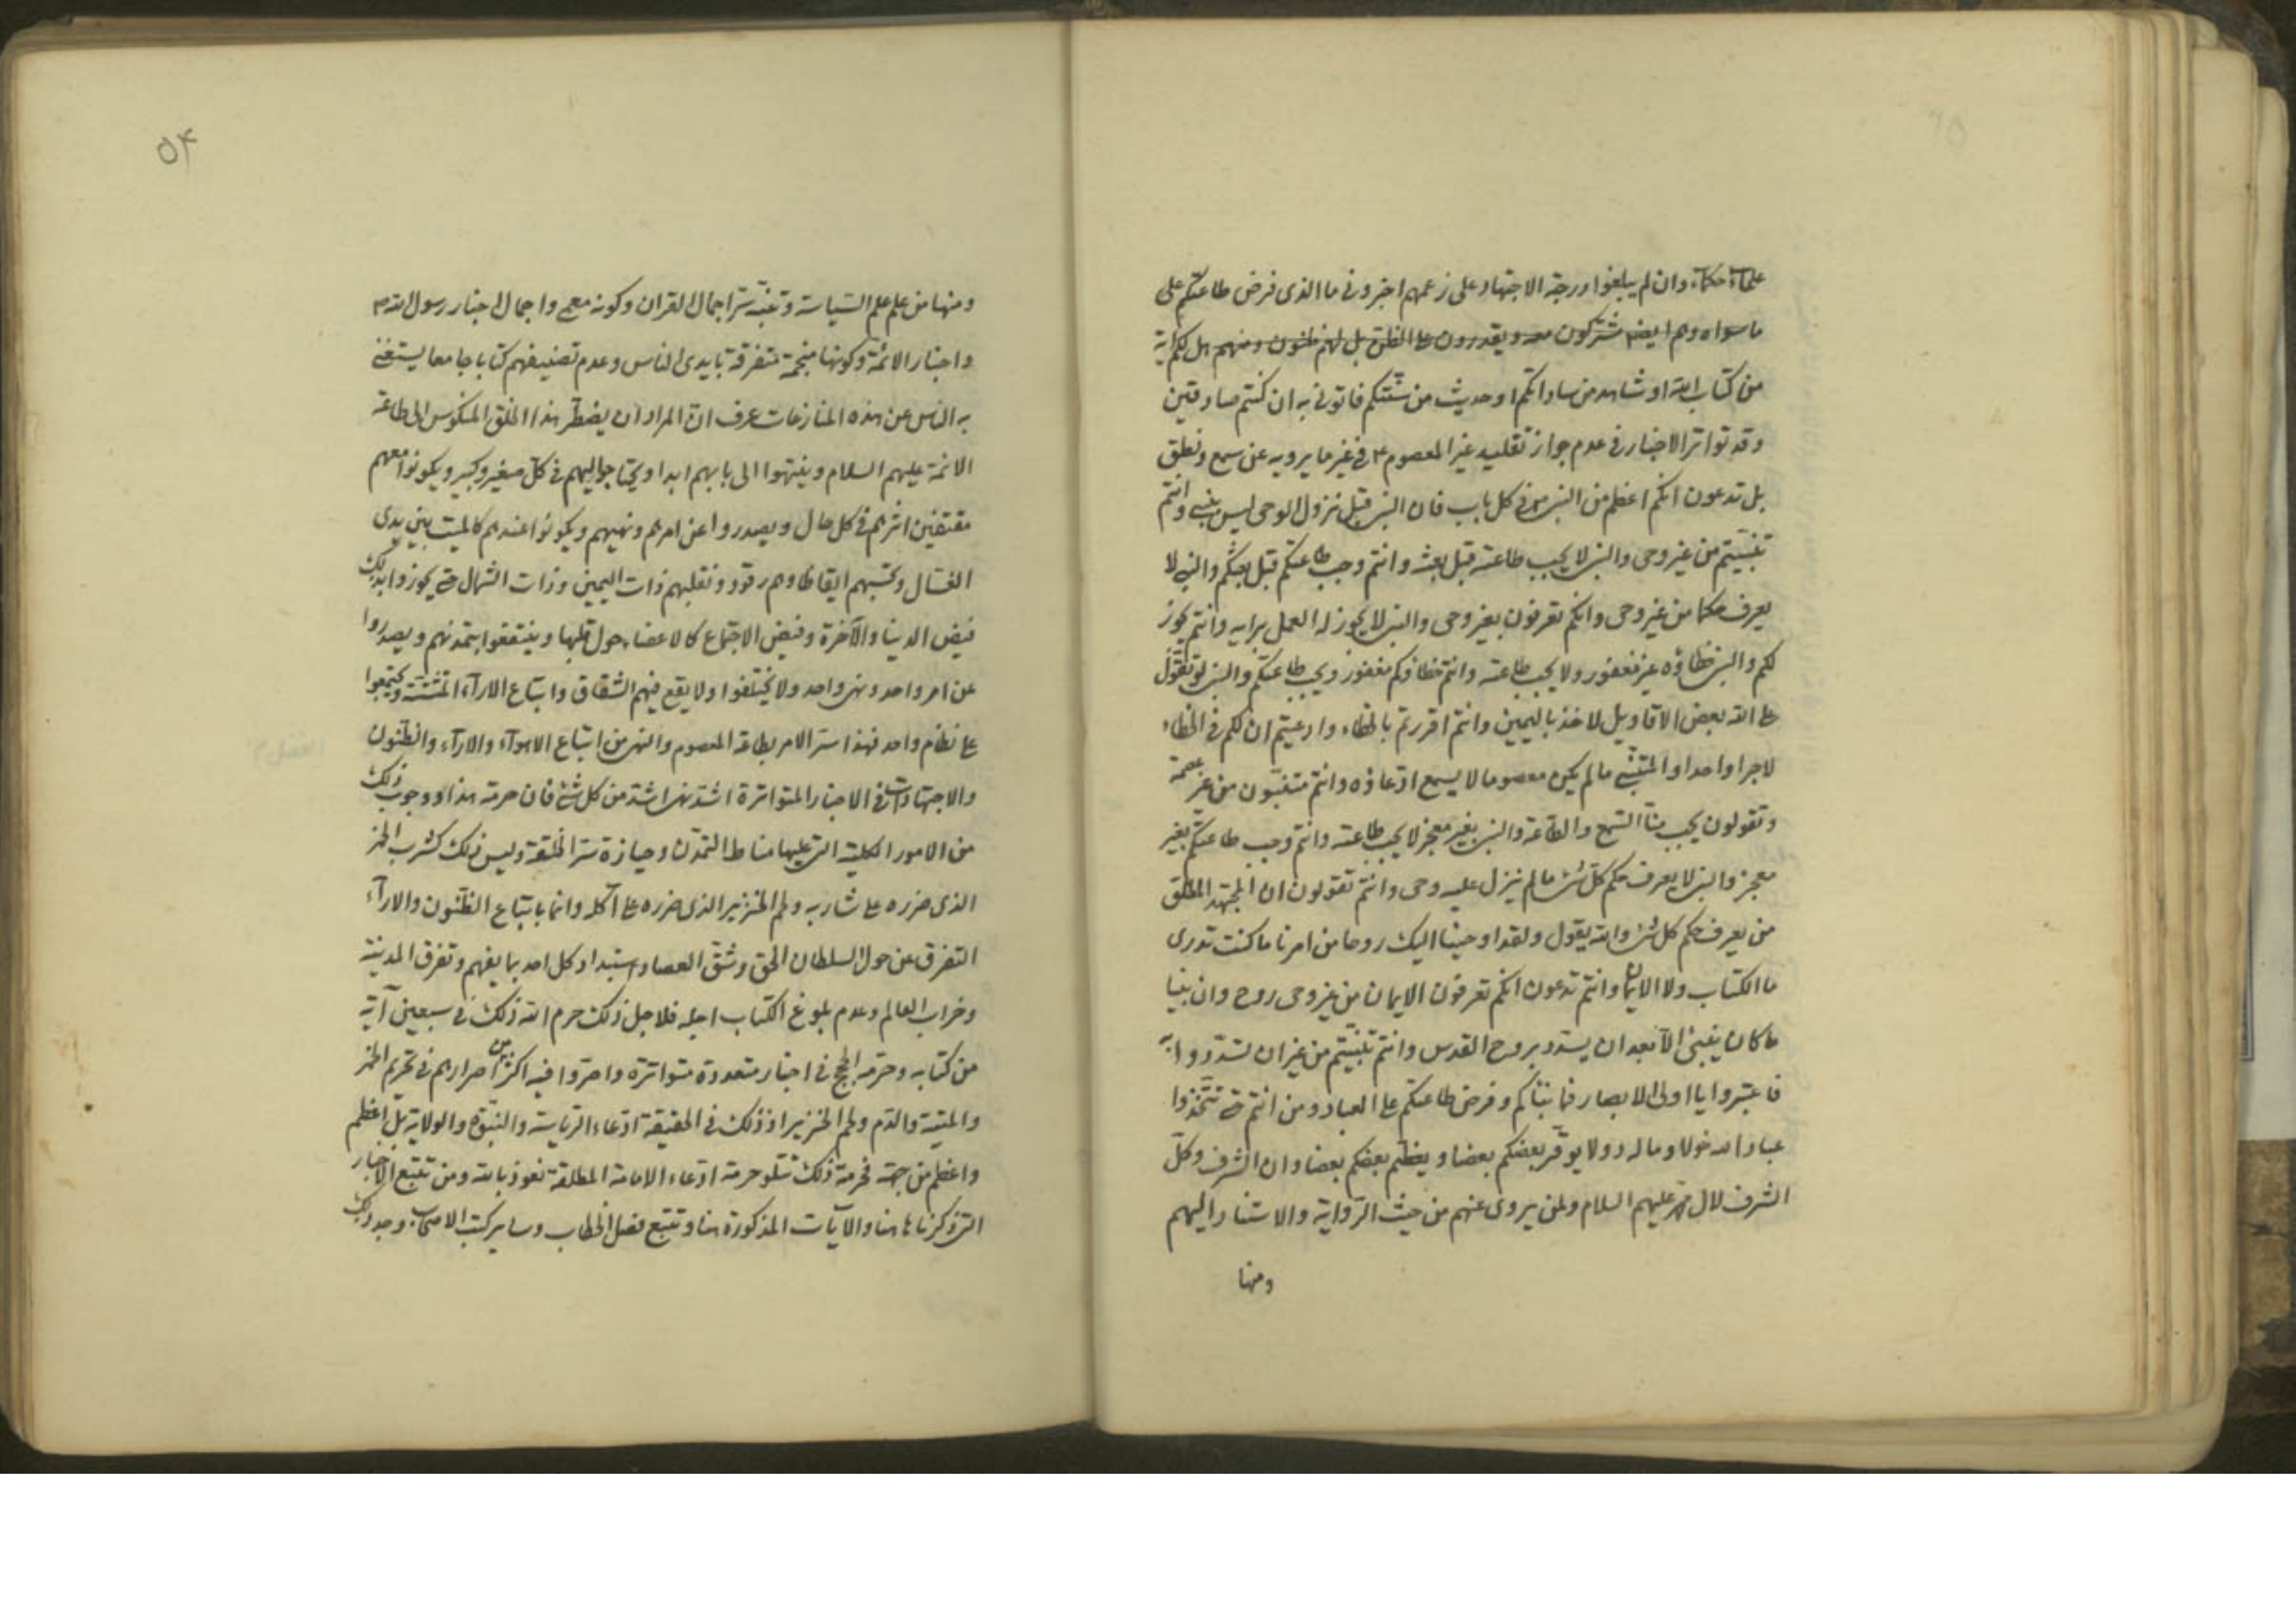 علماء حكماء وان لم يبلغوا درجة الاجتهاد على زعمهم اخبرونى ما الذى فرض طاعتكم على
ما سواه وهم ايضا مشتركون معه ويقدرون على الظن بل لهم ظنون ومنهم هل لكم اية
من كتاب الله او شاهد من ساداتكم او حديث من سنتكم فاتونى به ان كنتم صادقين
وقد تواتر الاخبار فى عدم جواز تقليد غير المعصوم ع فى غير ما يرويه عن سمع ونطق
بل تدعون انكم اعظم من النبى فى كل باب فان النبى قبل نزول الوحى ليس بنبى وانتم
تنبيتم من غير وحى والنبى لا يجب طاعته قبل بعثه وانتم وجب طاعتكم قبل بعثكم والنبى لا
يعرف حكما من غير وحى وانكم تعرفون بغير وحى والنبى لا يجوز له العمل برايه وانتم يجوز
لكم والنبى خطاؤه غير مغفور ولا يجب طاعته وانتم خطاؤكم مغفور ويجب طاعتكم والنبى لو تقول
على الله بعض الاقاويل لاخذ باليمين وانتم اقررتم بالخطاء وادعيتم ان لكم فى الخطاء
لاجرا واحدا والمتنبى ما لم يكن معصوما لا يسمع ادعاؤه وانتم متنبون من غير عصمة
وتقولون يجب منا السمع والطاعة والنبى بغير معجز لا يجب طاعته وانتم وجب طاعتكم بغير
معجز والنبى لا يعرف حكم كل شئ ما لم ينزل عليه وحى وانتم تقولون ان المجتهد المطلق
من يعرف حكم كل شئ والله يقول ولقد اوحينا اليك روحا من امرنا ما كنت تدرى
ما الكتاب ولا الايمان وانتم تدعون انكم تعرفون الايمان من غير وحى روح وان نبيا
ما كان ينبئ الا بعد ان يسدد بروح القدس وانتم تنبيتم من غير ان تسددوا به
فاعتبروا يا اولى الابصار فما نبأكم وفرض طاعتكم على العباد ومن انتم حتى تتخذوا
عباد الله خولا وماله دولا يوقر بعضكم بعضا ويعظم بعضكم بعضا وان الشرف وكل
الشرف لال محمد عليهم السلام ولمن يروى عنهم من حيث الرواية والاستناد اليهم
ومنها
٥٤
ومنها من علم علم السياسة وتنبه سر اجمال القران وكونه معمى واجمال اخبار رسول الله ص
واخبار الائمة وكونها منجمة متفرقة بايدى الناس وعدم تصنيفهم كتابا جامعا يستغنى
به الناس عن هذه المنازعات عرف ان المراد ان يضطر هذا الخلق المنكوس الى طاعة
الائمة عليهم السلام وينتهوا الى بابهم ابدا ويحتاجوا اليهم فى كل صغير وكبير ويكونوا معهم
مقتفين اثرهم فى كل حال ويصدروا عن امرهم ونهيهم ويكونوا عندهم كالميت بين يدى
الغسال وتحسبهم ايقاظا وهم رقود ونقلبهم ذات اليمين وذات الشمال حتى يحوزوا بذلك
فيض الدنيا والآخرة وفيض الاجتماع كالاعضاء حول قلبها وينتفعوا بتمدنهم ويصدروا
عن امر واحد ونهى واحد ولا يختلفوا ولا يقع فيهم الشقاق واتباع الاراء المتشتتة ويجتمعوا
على نظام واحد فهذا سر الامر بطاعة المعصوم والنهى من اتباع الاهواء والاراء والظنون
والاجتهادات فى الاخبار المتواترة اشد نهى اشد من كل شئ فان حرمة هذا ووجوب ذلك
من الامور الكلية التى عليها مناط التمدن وحيازة سر الخلقة وليس ذلك كشرب الخمر
الذى ضرره على شاربه ولحم الخنزير الذى ضرره على آكله وانما باتباع الظنون والاراء
التفرق عن حول السلطان الحق وشق العصا واستبداد كل احد بما يفهم وتفرق المدينة
وخراب العالم وعدم بلوغ الكتاب اجله فلاجل ذلك حرم الله ذلك فى سبعين آية
من كتابه وحرمه الحجج فى اخبار متعددة متواترة واصروا فيه اكثر من اصرارهم فى تحريم الخمر
والميتة والدم ولحم الخنزير اذ ذلك فى الحقيقة ادعاء الرياسة والنبوة والولاية بل اعظم
واعظم من جهة فحرمة ذلك تتلو حرمة ادعاء الامامة المطلقة نعوذ بالله ومن تتبع الاخبار
التى ذكرناها هنا والآيات المذكورة هنا وتتبع فصل الخطاب وساير كتب الاصحاب وجد ذلك